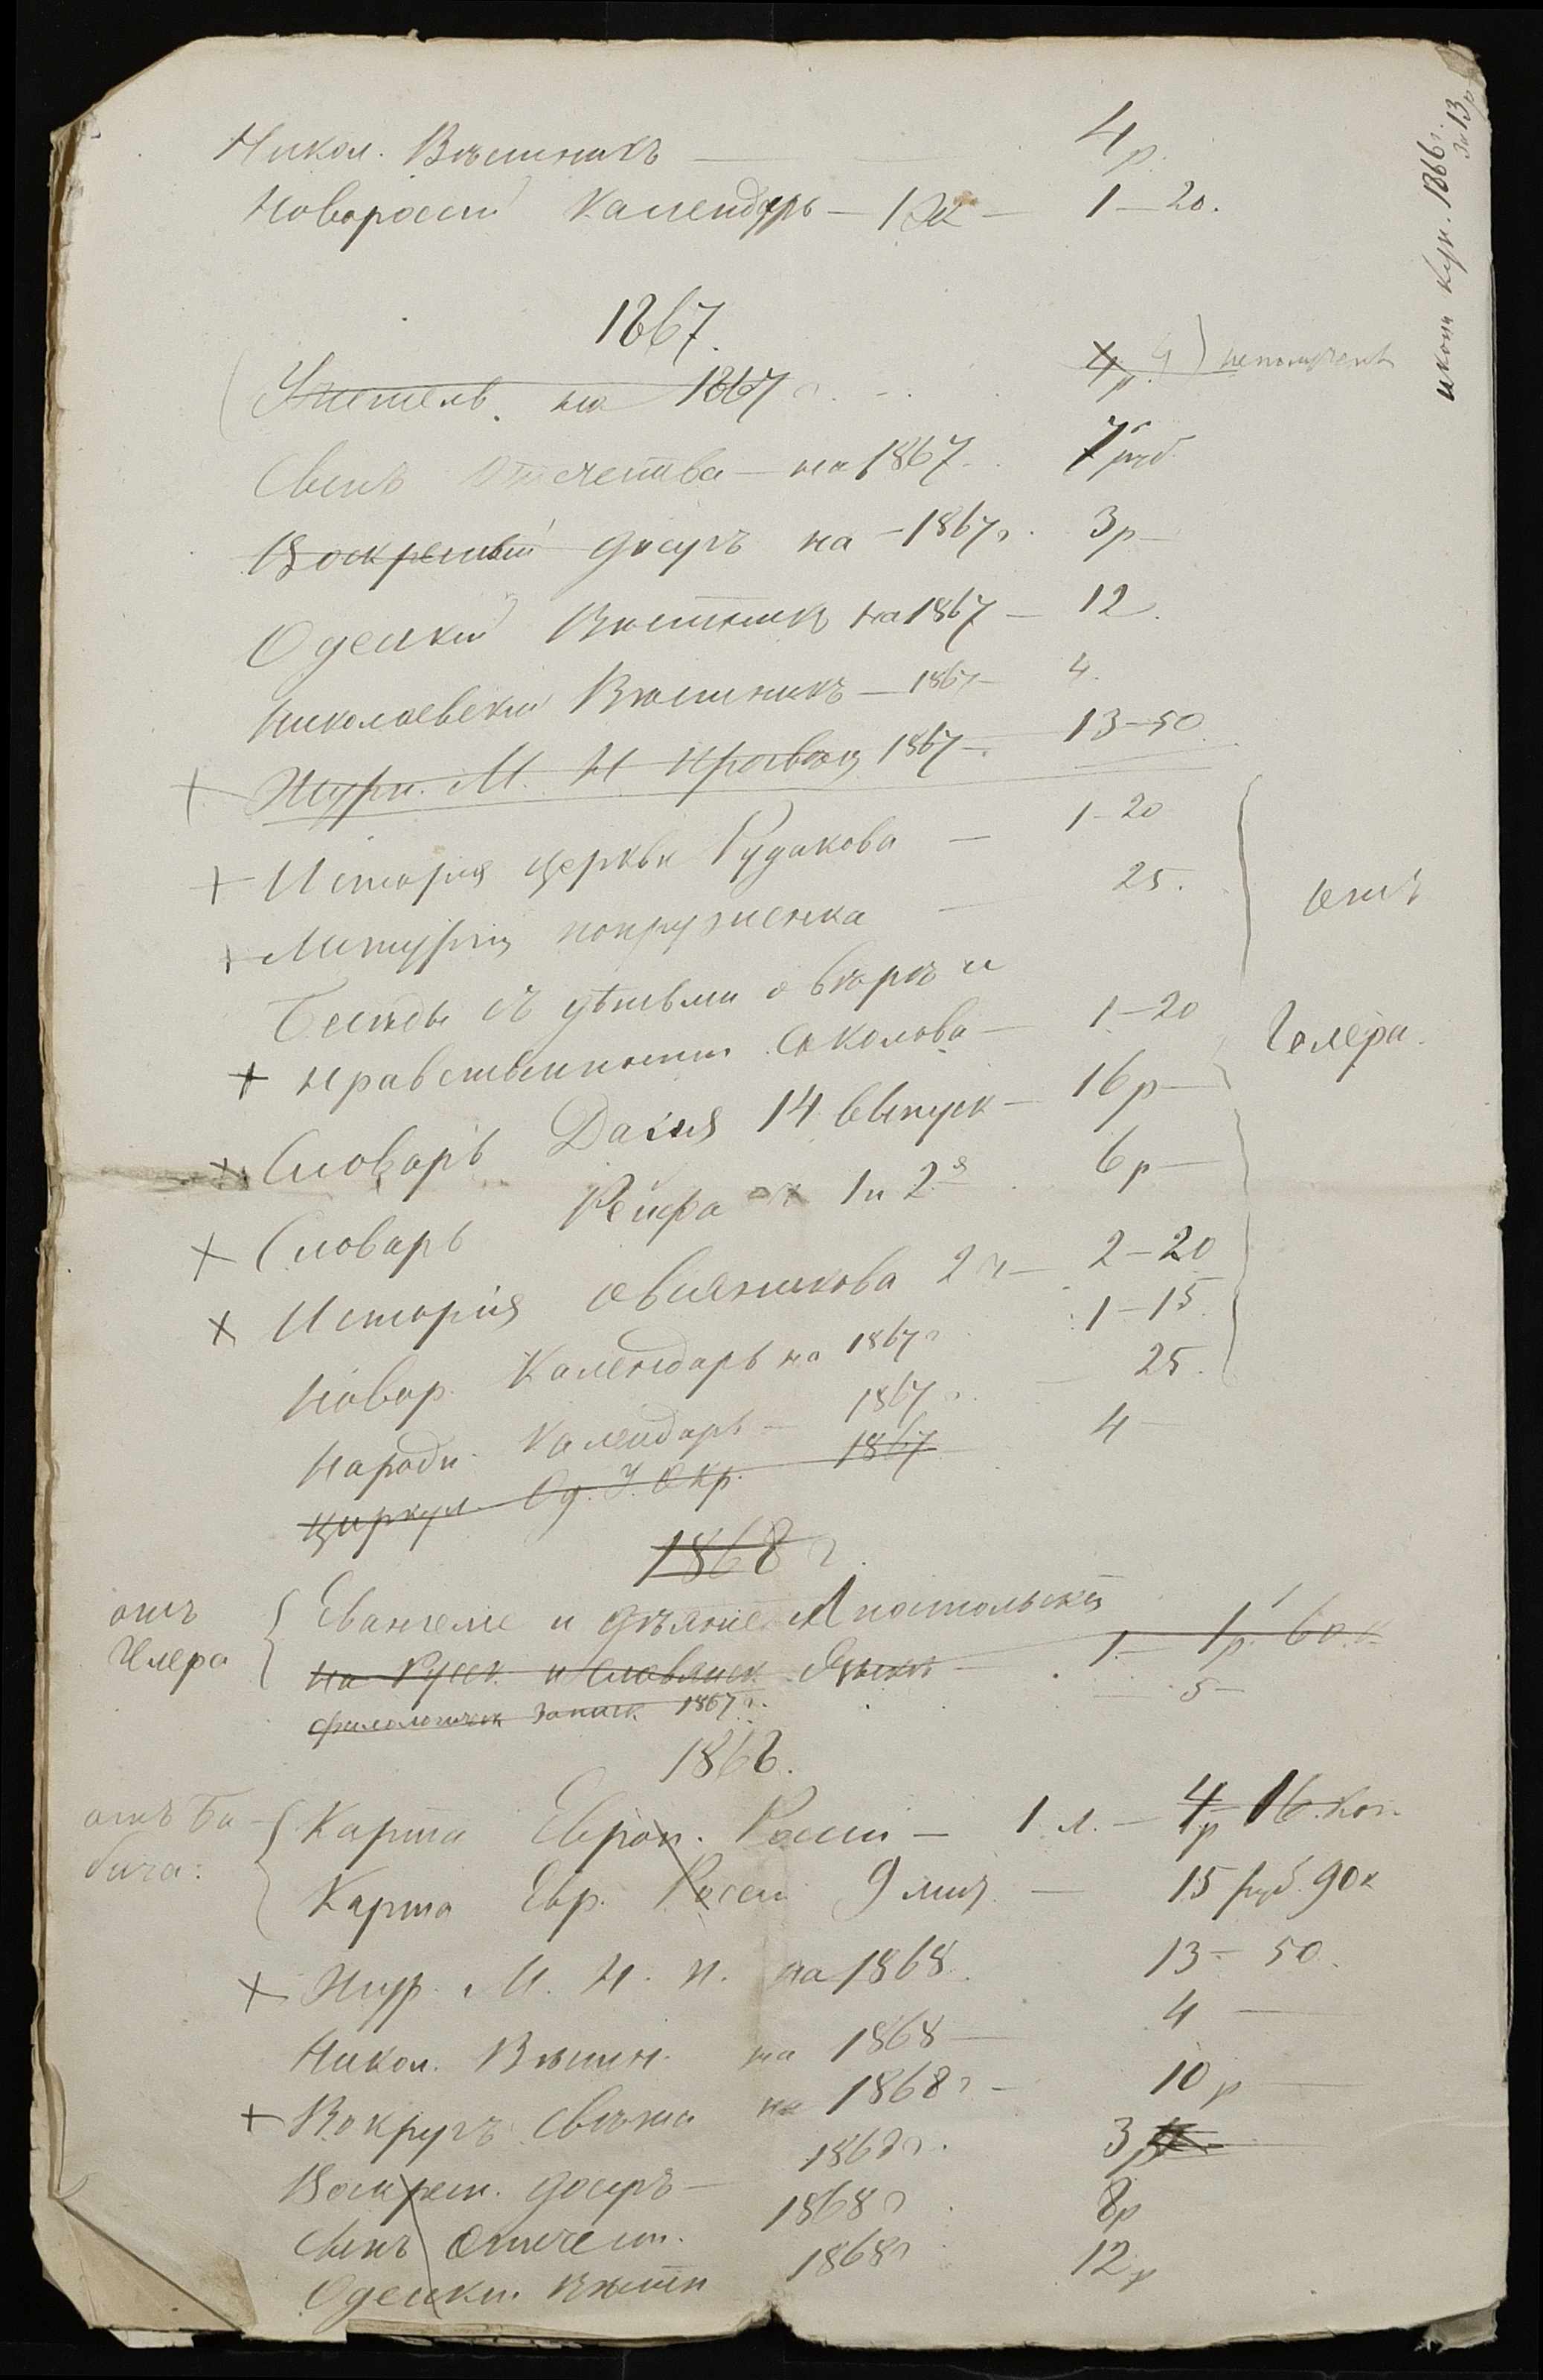 Никол. Вѣстникъ — 4 р.
Новоросcій Календарь — 1 эк — 1 — 20.
1867.
Учитель на 1867 г. 4 р. 4) неполученъ
Сынъ Отечества — на 1867. 7 руб.
Воскресный досугъ на — 1867 г. 3 р —
Одесскій Вѣстникъ на 1867 — 12.
Николаевскій Вѣстникъ — 1867 — 4.
+ Журн. М. Н. Просвѣщ 1867 — 13 — 50.
+ Исторія церкви Рудакова — 1 — 20
+ Литургія — 25.
отъ
Бесѣды съ дѣтьми о вѣрѣ и
+ нравственности Соколова — 1 — 20
+ Словарь Даля 14 выпуск — 16 р —
+ Словарь Рейфа ч 1 и 2я 6 р —
+ История Овсяникова 2 ч — 2 — 20
Новор. Календарь на 1867 г. 1 — 15.
Народн. Календарь — 1867 г. 25.
Циркул. Од. У. Окр. 1867 4 —
1868 г.
отъ
Евангеліе и дѣянie Апостольскія
на Русск. и Славянск. Языкѣ — 1 — 1 р. 60 к.
филологическ записк 1867 г. — 5 —
1868.
отъ Ба-
бича:
Карта Европ. Россіи — 1 л. — 4 р 16 коп.
Карта Евр. Россіи 9 лист. — 15 руб. 90 к
+ Жур. М. Н. П. на 1868. 13 — 50.
Никол. Вѣстн. на 1868 — 4 —
+ Вокругъ свѣта на 1868 г — 10 р —
Воскресн. досугъ — 1868 г. 3 р
Сынъ Отечест. 1868 г. 8 р
Одесскій Вѣстн 1868 г 12 р
1866 г.
за 13 р